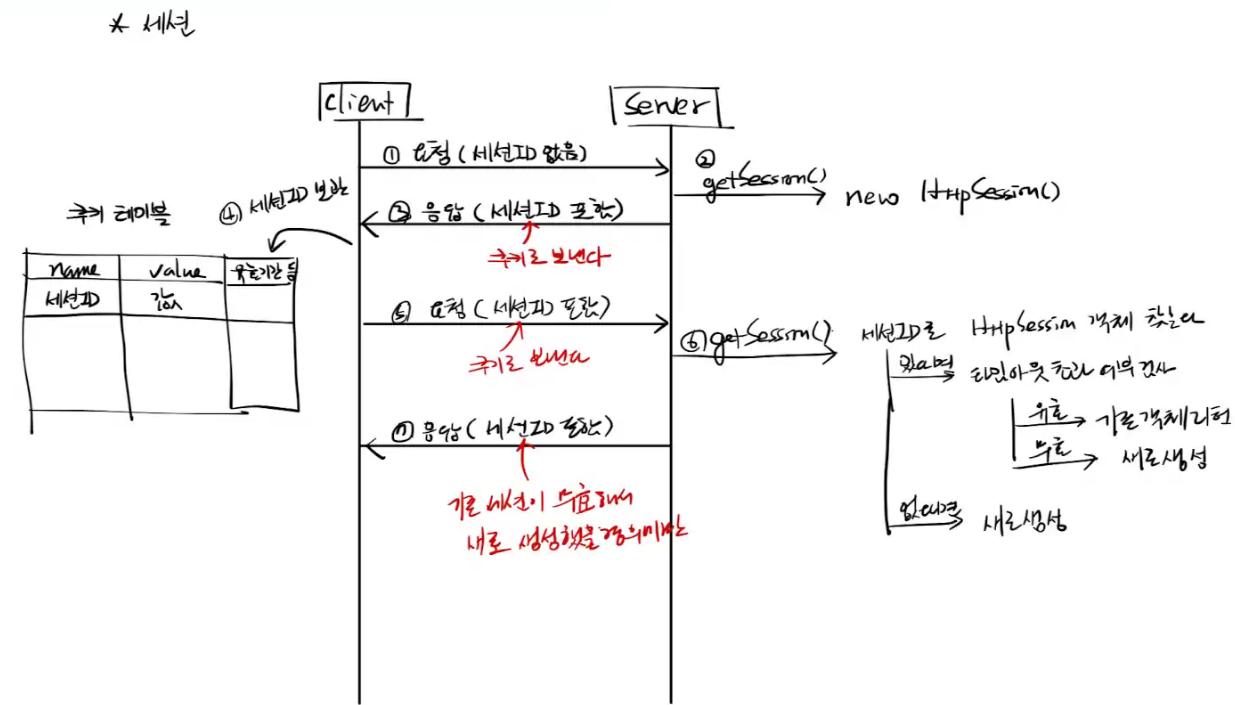 * 세션
Client
Server
① 요청 (세션ID 없음)
②
getSession()
new HttpSession()
③ 응답 (세션ID 포함)
쿠키로 보낸다
④ 세션ID 보관
쿠키 테이블
name value 유효기간 등
세션ID 값
⑤ 요청 (세션ID 포함)
쿠키로 보낸다
⑥ getSession()
세션ID로 HttpSession 객체 찾는다
있으면
타임아웃 초과 여부 검사
유효
기존 객체 리턴
무효
새로 생성
없으면
새로 생성
⑦ 응답 (세션ID 포함)
기존 세션이 무효해서
새로 생성했을